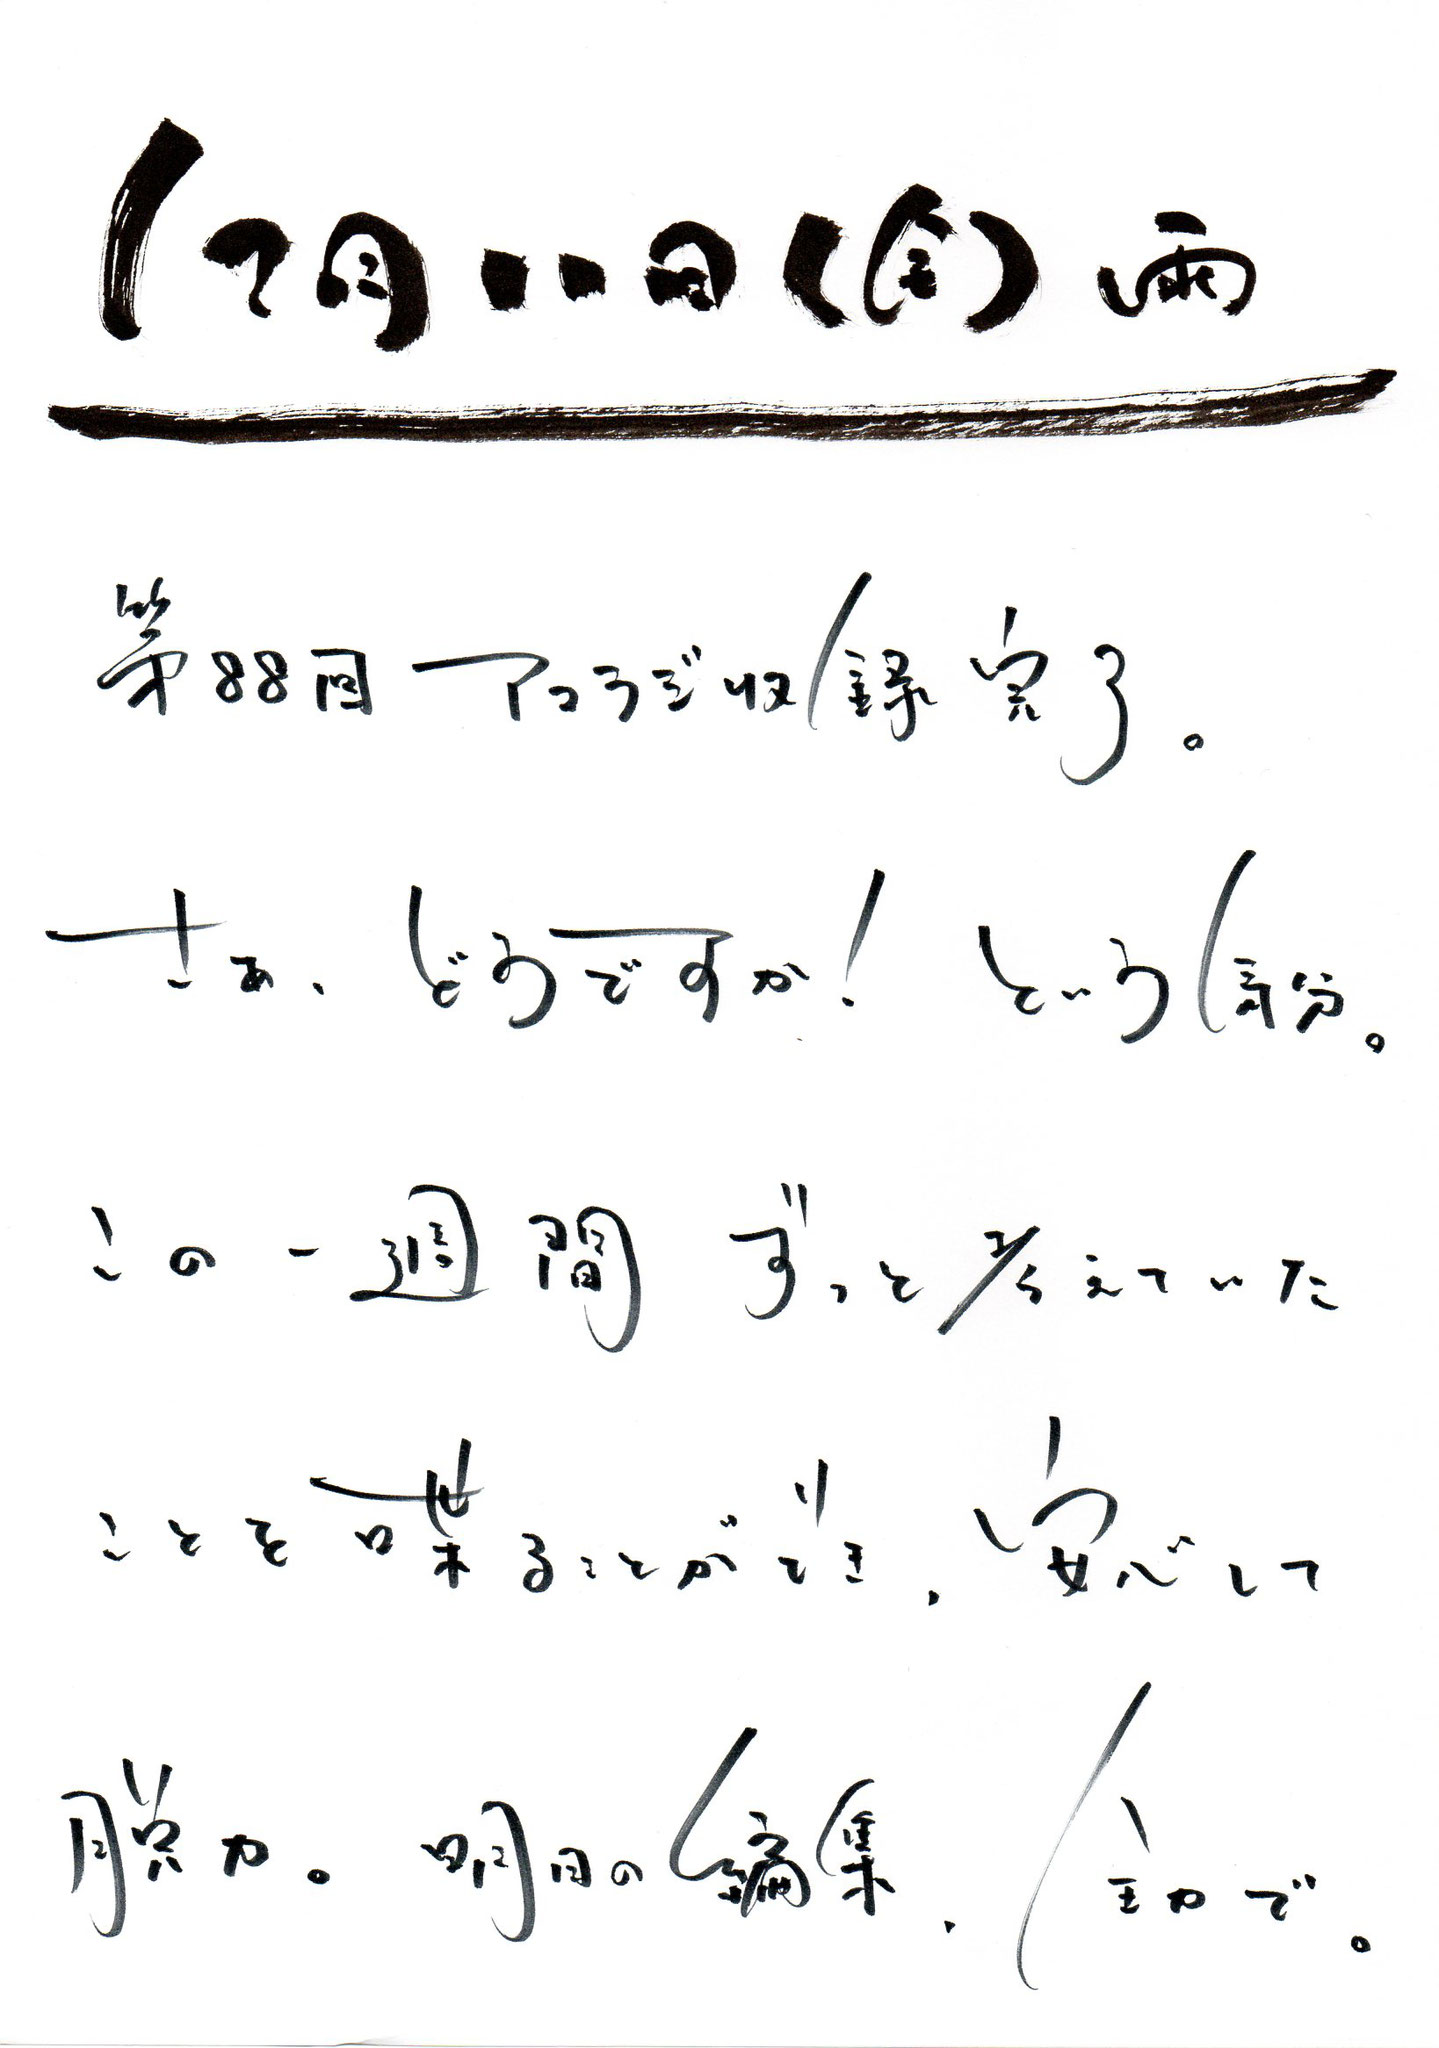 12月11日(金)雨
第88回 アコラジ収録完了。
さぁ、どうですか! という気分。
この一週間 ずっと考えていた
ことを喋ることができ、安心して
脱力。明日の編集、全力で。